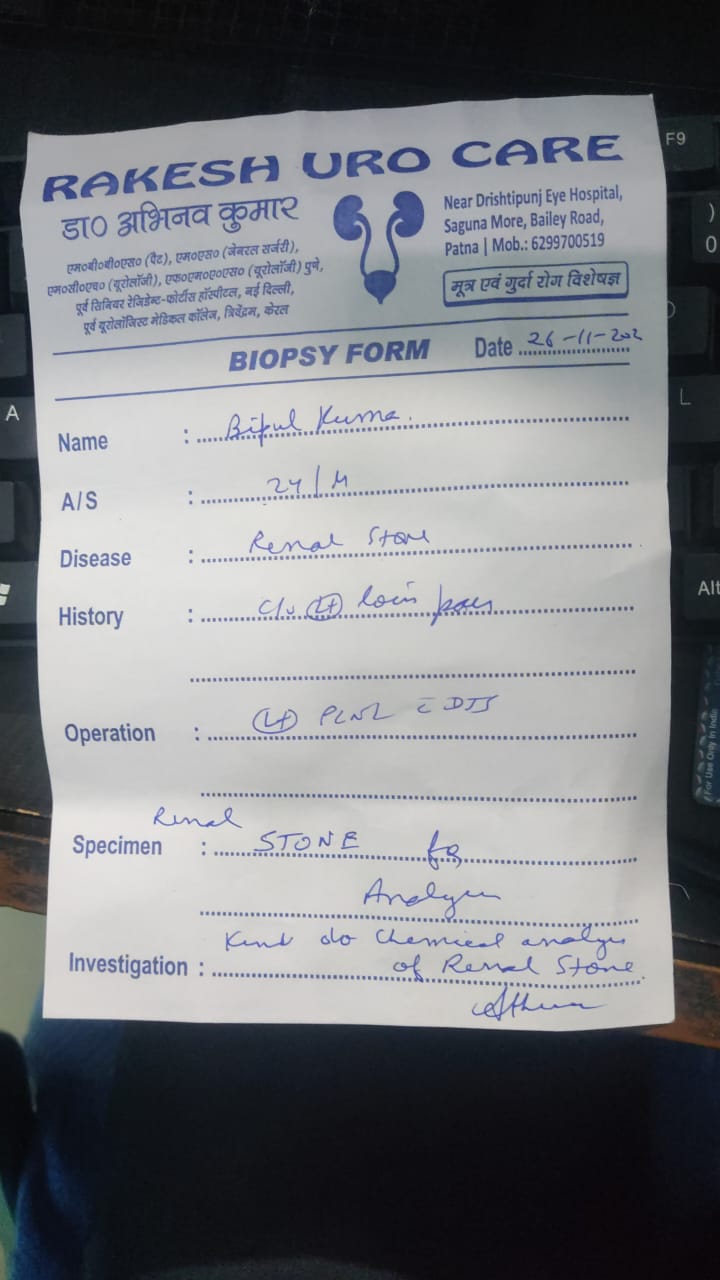 RAKESH URO CARE
डा० अभिनव कुमार
एम०बी०बी०एस० (पैट), एम०एस० (जेनरल सर्जरी),
एम०सी०एच० (यूरोलॉजी), एफ०एम०ए०एस० (यूरोलॉजी) पुणे,
पूर्व सिनियर रेजिडेन्ट-फोर्टीस हॉस्पीटल, नई दिल्ली,
पूर्व यूरोलॉजिस्ट मेडिकल कॉलेज, त्रिवेंद्रम, केरल
Near Drishtipunj Eye Hospital,
Saguna More, Bailey Road,
Patna | Mob.: 6299700519
मूत्र एवं गुर्दा रोग विशेषज्ञ
BIOPSY FORM Date 26-11-202
Name : Bipul Kuma.
A/S : 24/M
Disease : Renal Stone
History : c/o Lt loin pain
Operation : Lt PCNL c DJS
Renal
Specimen : STONE for
Analysis
Kind do Chemical analysis
Investigation : of Renal Stone.
F9
)
0
A
L
Alt
For Use Only In India